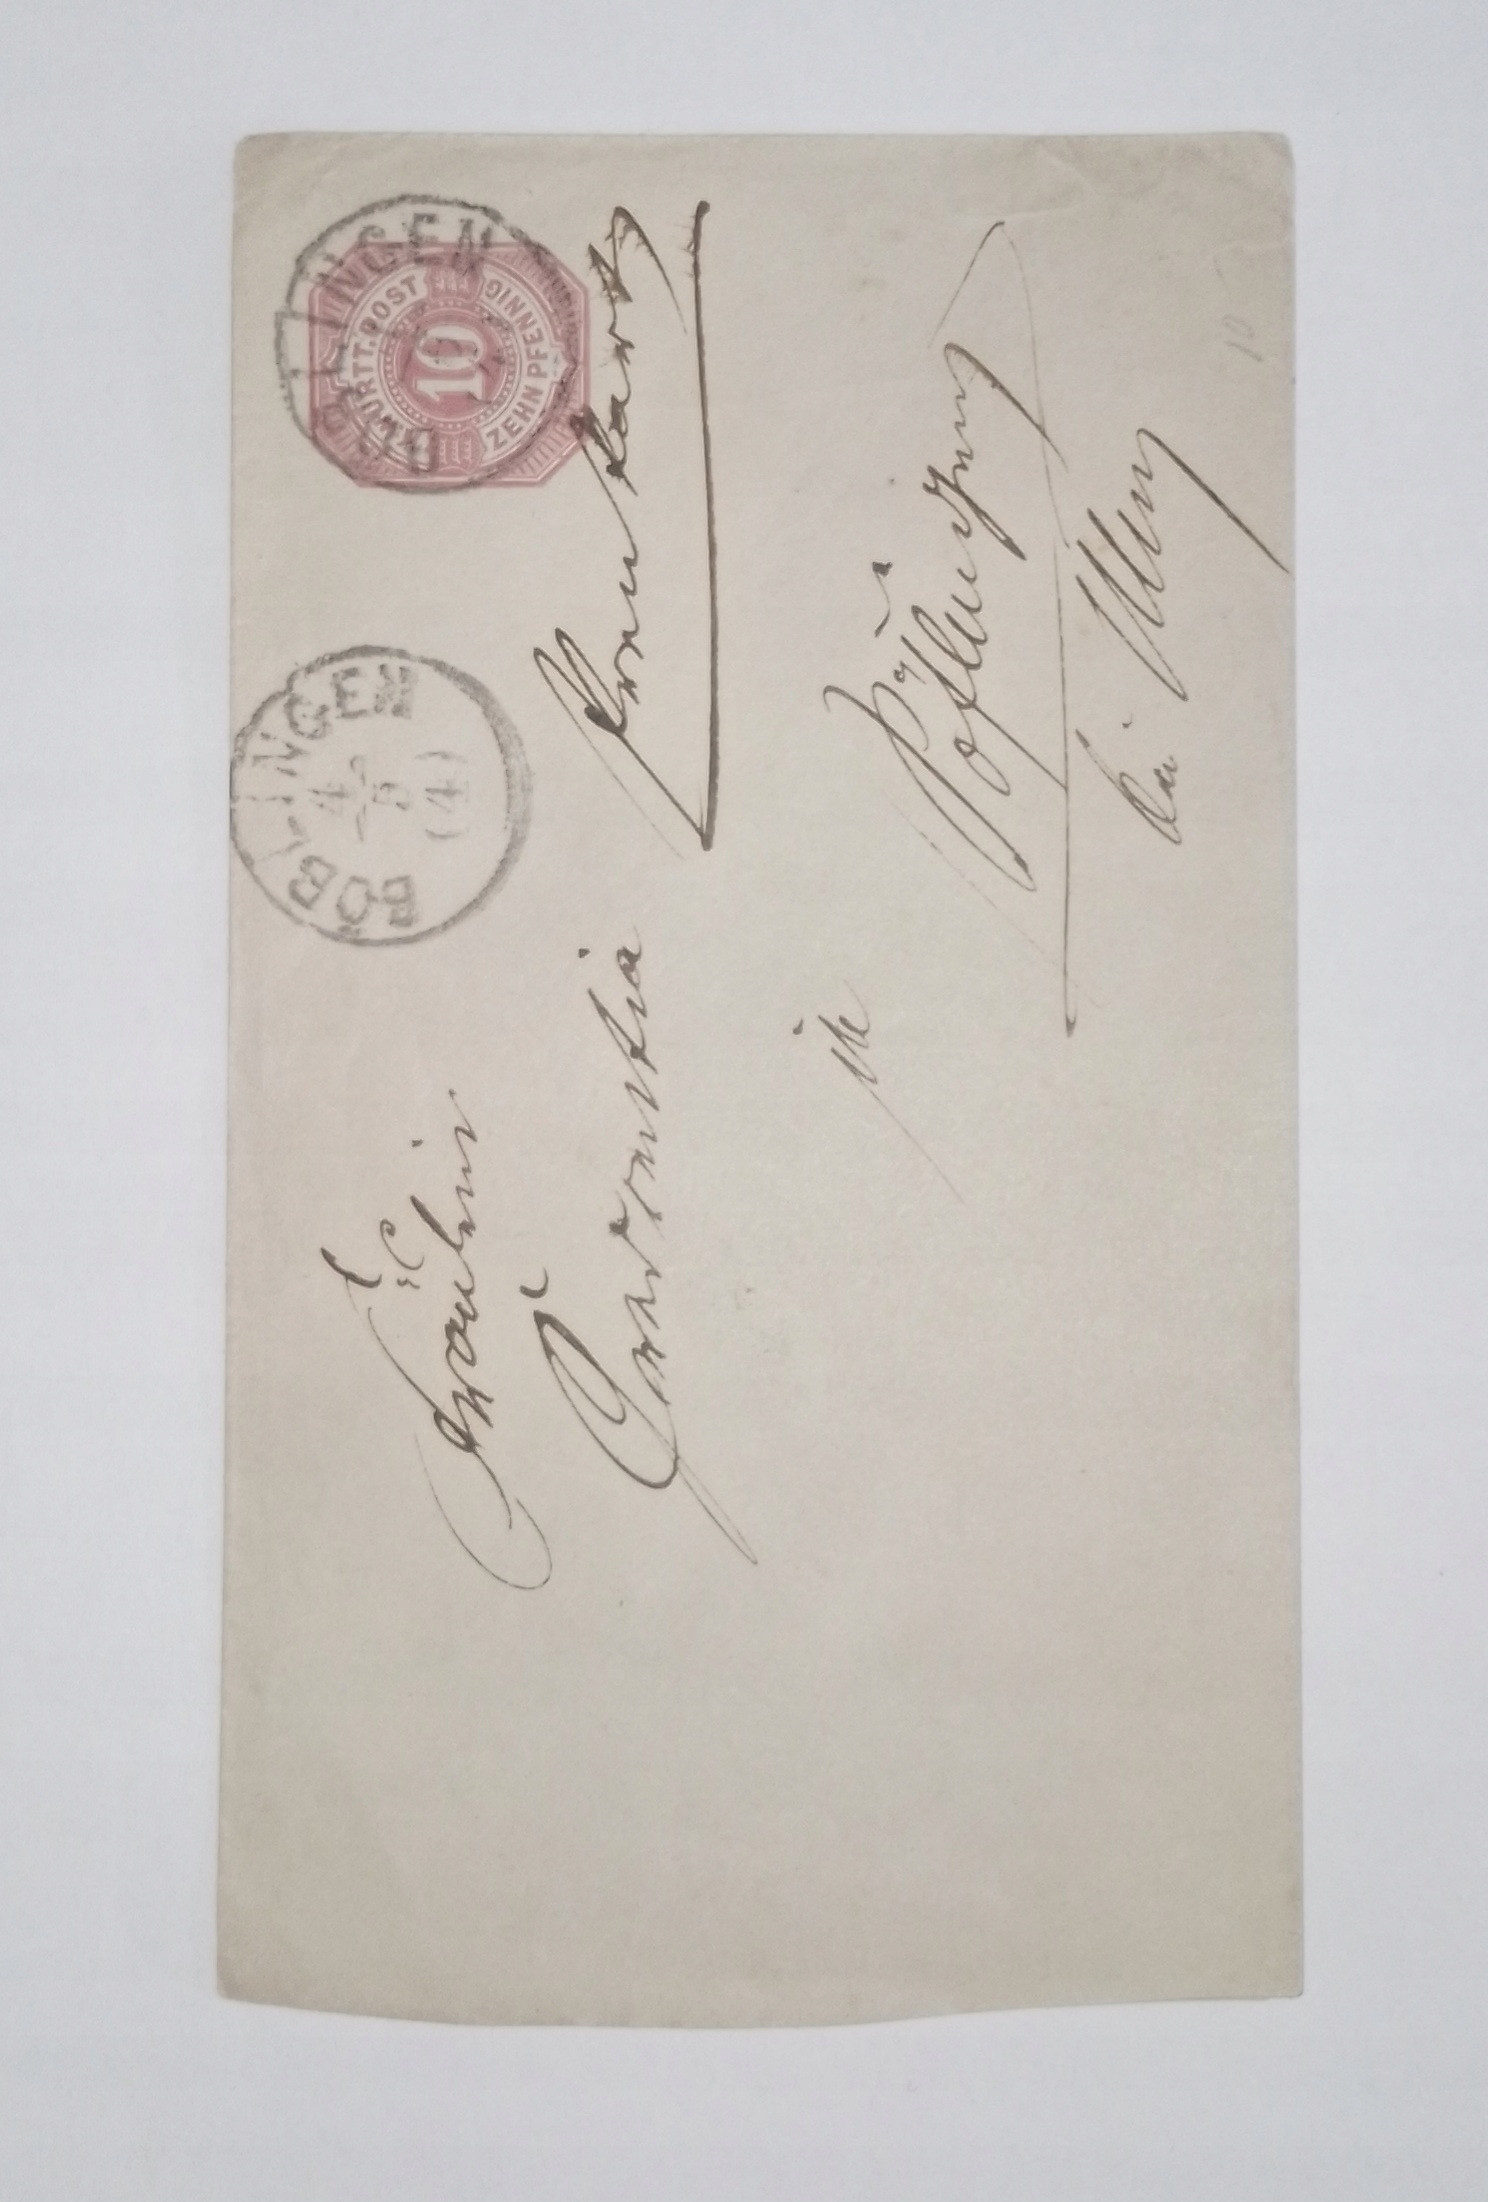 WÜRTT. POST
10
ZEHN PFENNIG
BÖBLINGEN
BÖBLINGEN
4
5
(4)
Fräulein
in
Söflingen
bei Ulm
10